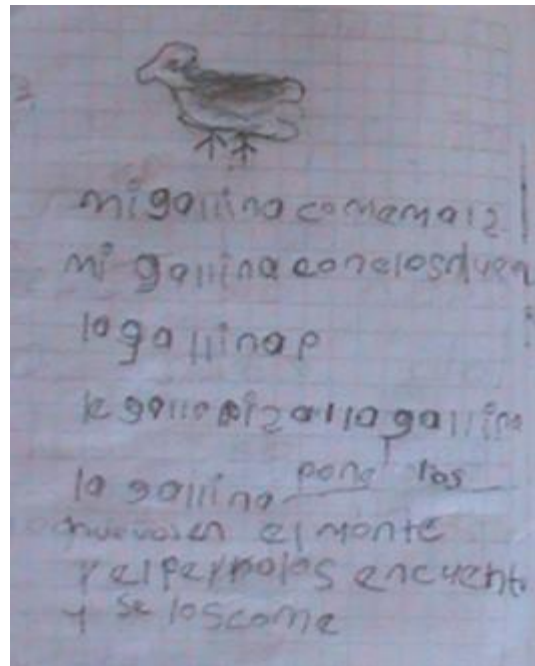 mi gallina comemaiz
mi gallina cone los
la gallina p
le gallo piza l la gallina
la gallina pone los
huevos en el monte
y el perro los encuent
y se los come